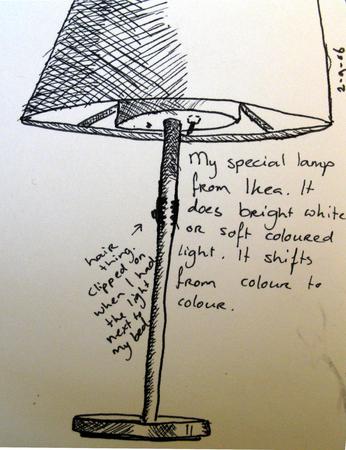 2-9-06
My special lamp
from Ikea. It
does bright white
or soft coloured
light. It shifts
from colour to
colour.
hair
thing.
clipped on
when I had
the light
next to
my bed